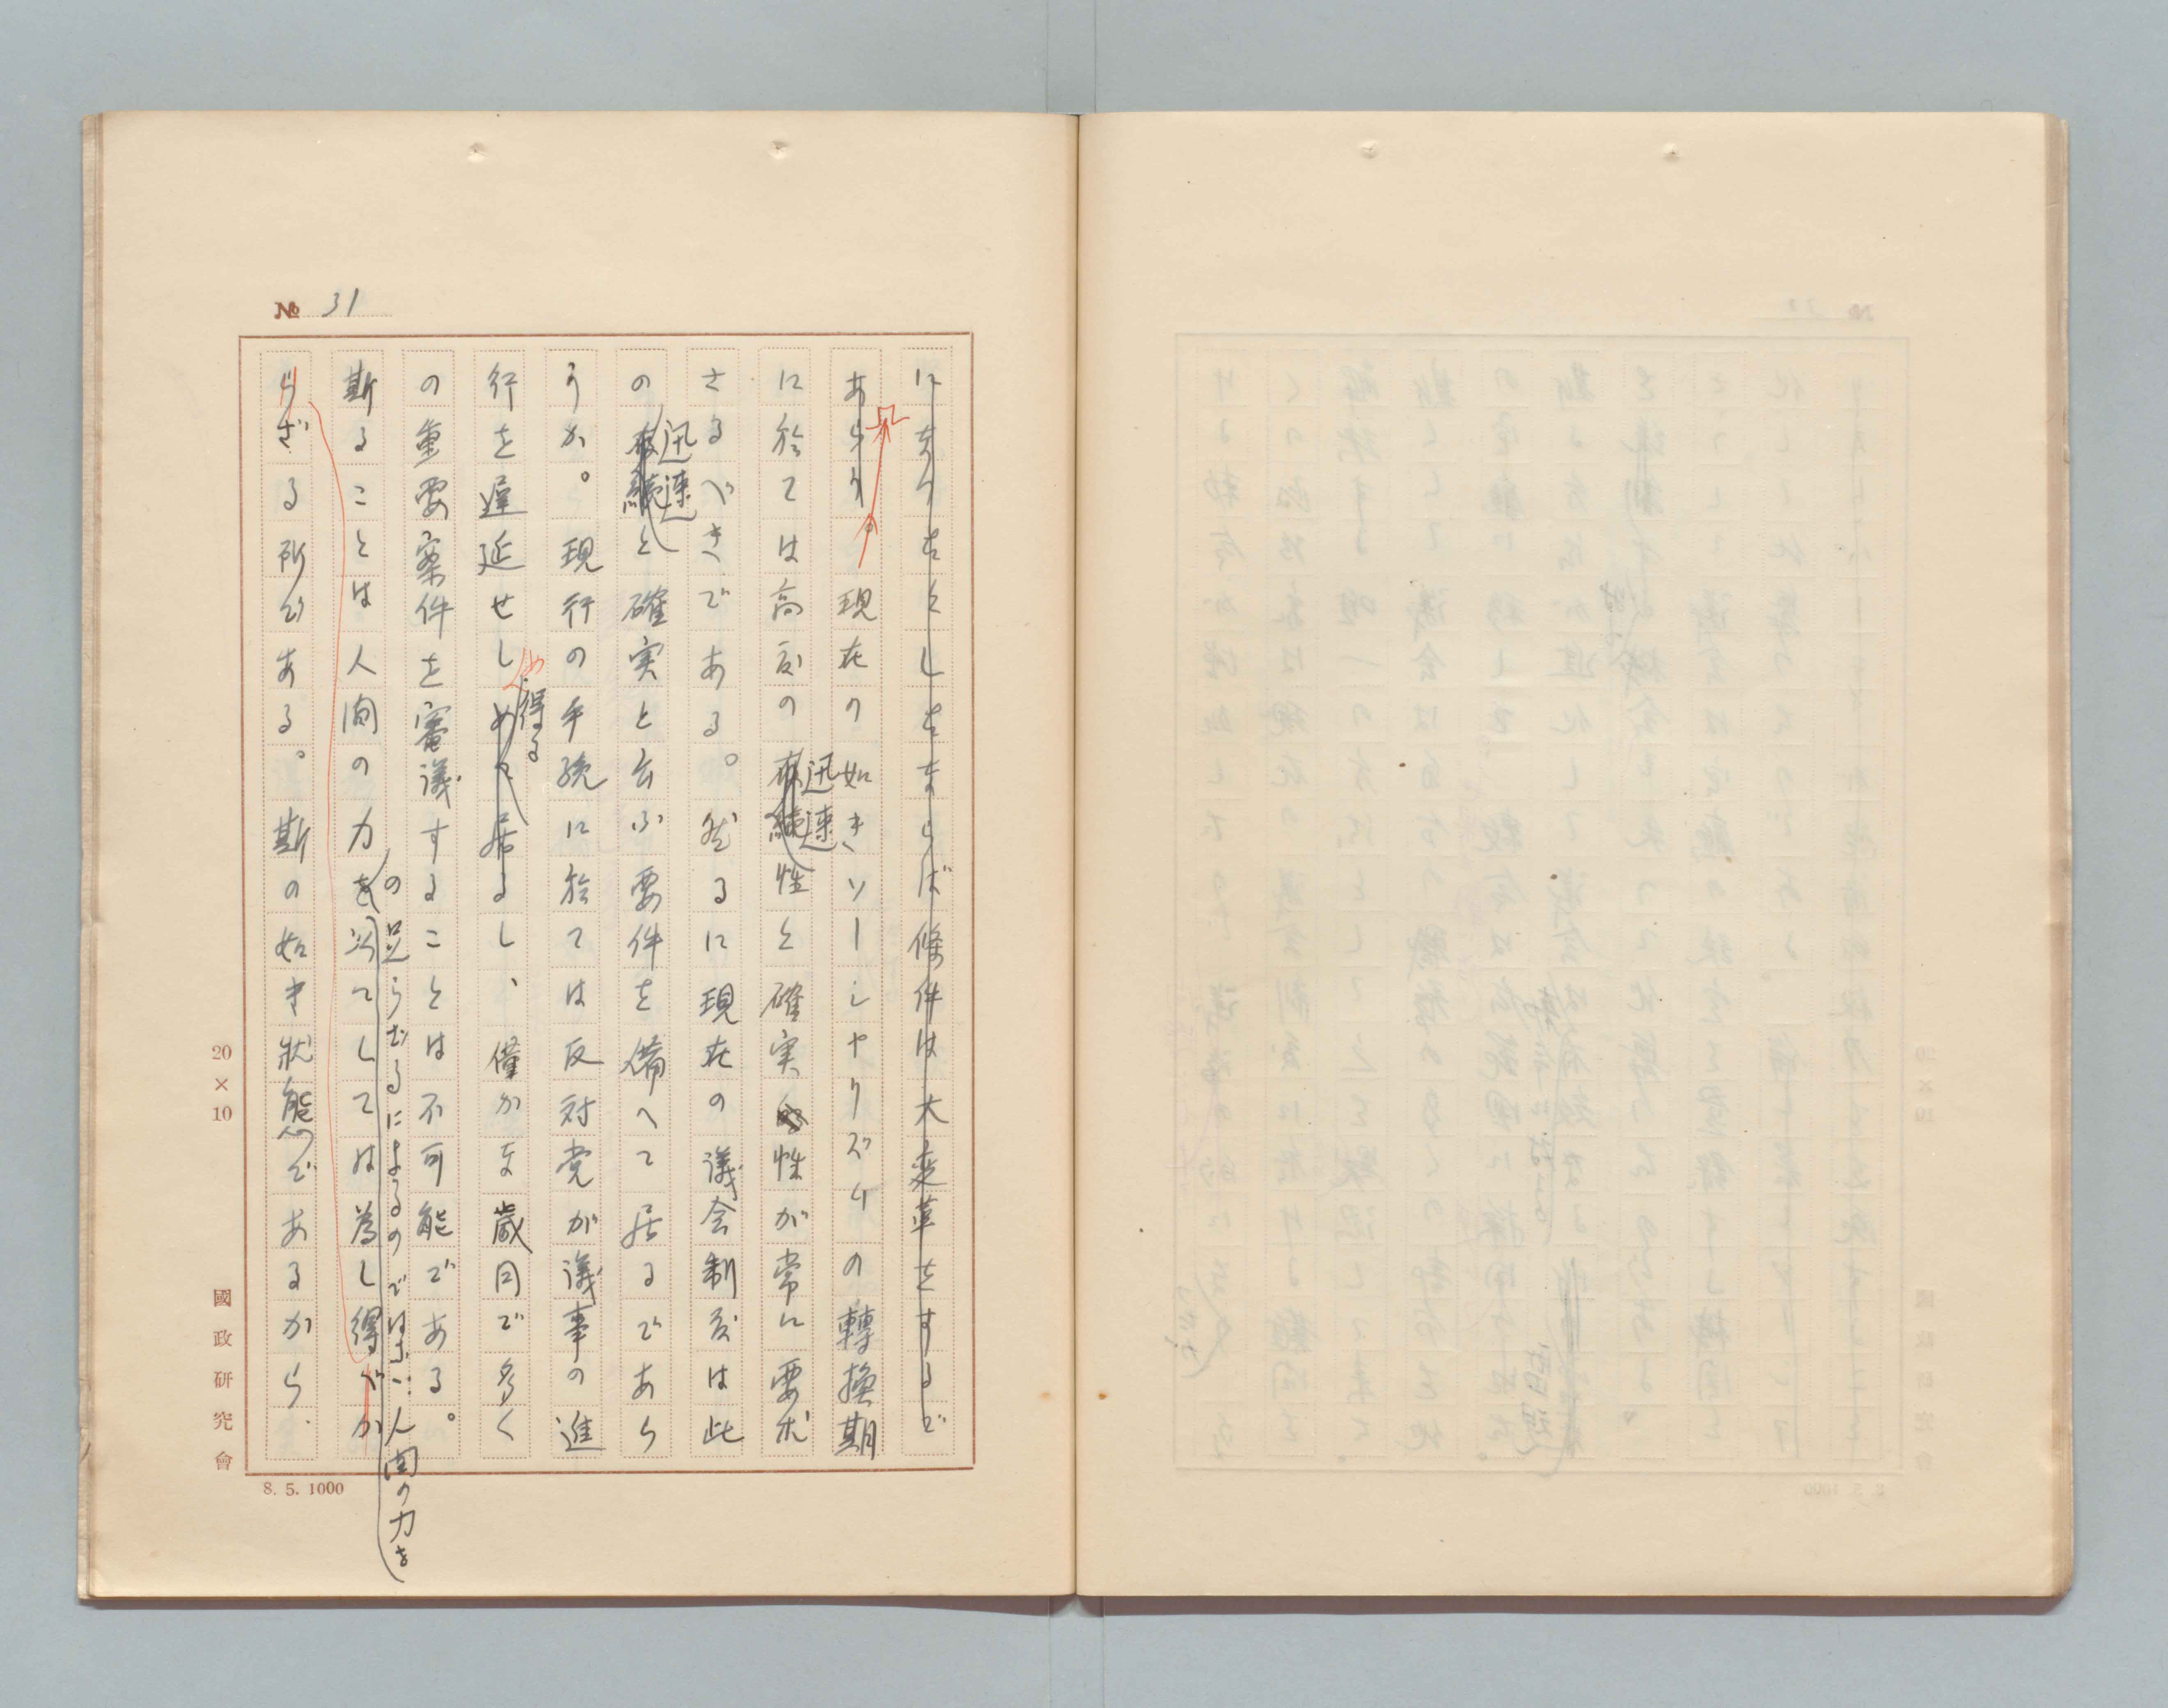 № 31
になつたとしたならば條件は大変革をするで
あらう 現在の如きソーシヤリズムの轉換期
に於ては高度の敏続性と確実性が常に要求
迅速
さるべきである。然るに現在の議会制度は此
の敏続と確実と云ふ要件を備へて居るであら
迅速
うか。現行の手続に於ては反対党が議事の進
行を遅延せしめて居るし、僅かな歳月で多く
め得る
の重要案件を審議することは不可能である。
の足らざるによるのではない人間の力を
斯ることは人間の力を以てしては為し得べか
らざる所である。斯の如き狀態であるから、
20×10
國政研究會
8. 5. 1000